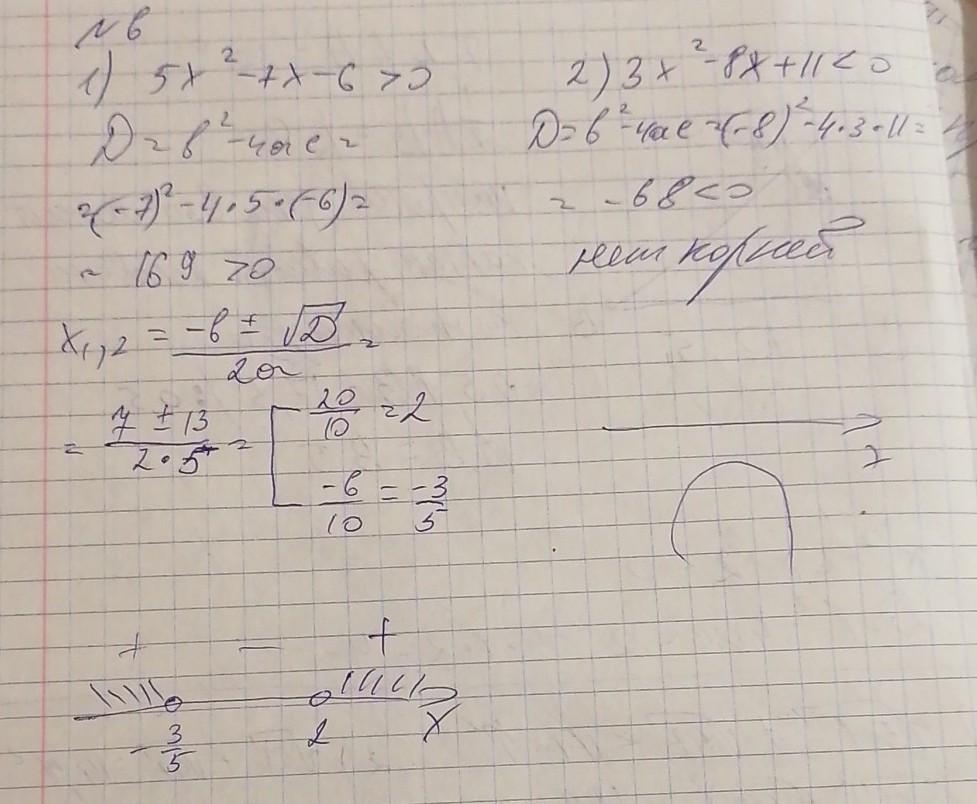 №6
1) 5x² - 7x - 6 > 0
D = b² - 4ac =
= (-7)² - 4·5·(-6) =
= 169 > 0
x₁,₂ = (-b ± √D)/(2a) =
= (7 ± 13)/(2·5) = [ 20/10 = 2
-6/10 = -3/5
+ − +
-3/5 2 x
2) 3x² - 8x + 11 < 0
D = b² - 4ac = (-8)² - 4·3·11 =
= -68 < 0
нет корней